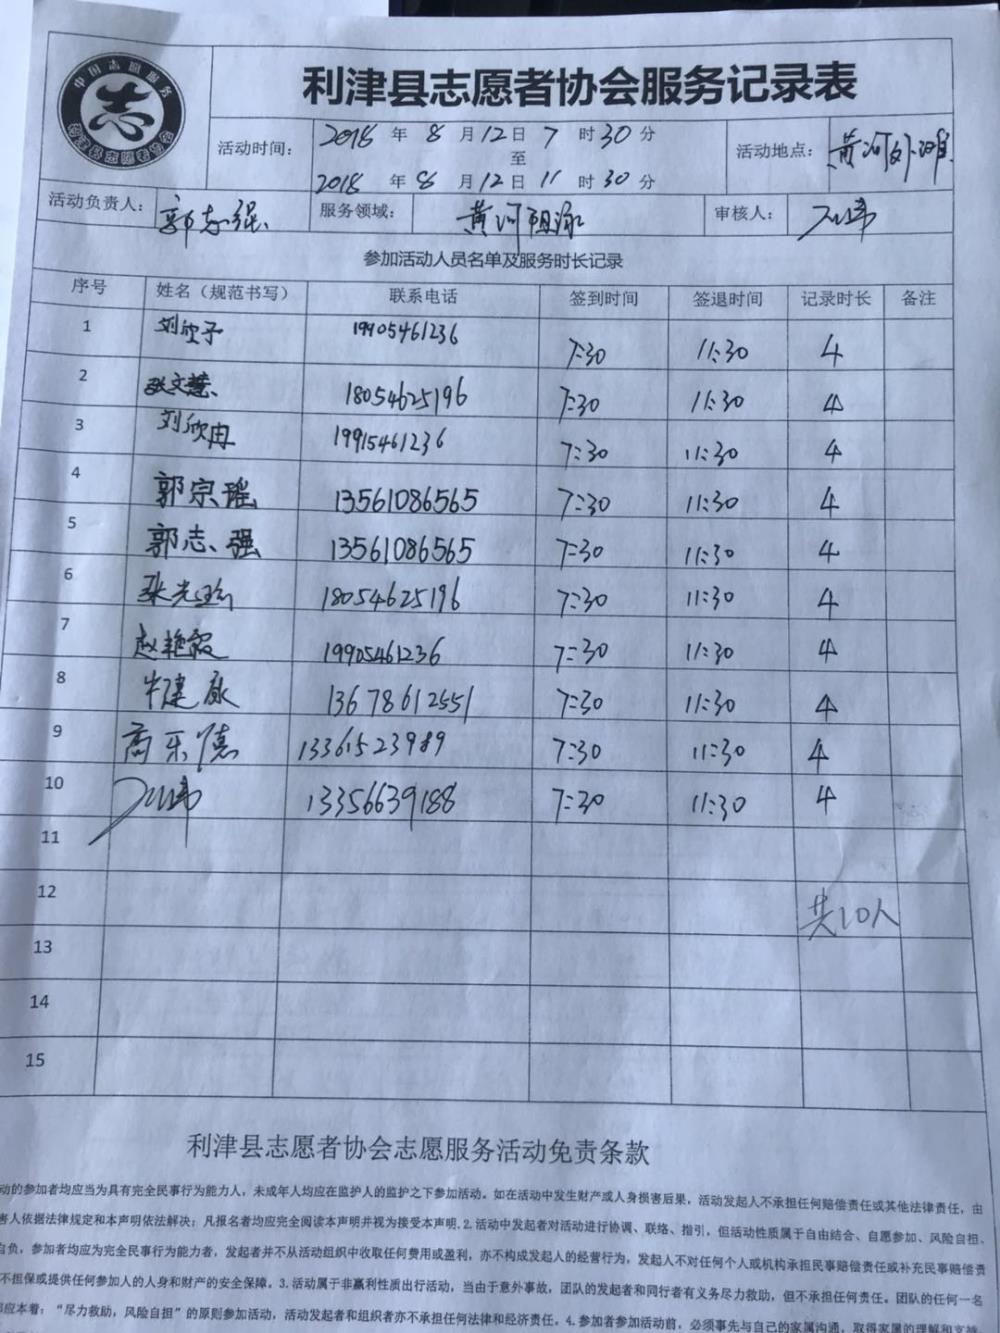 中国志愿服务
志
利津县志愿者协会
利津县志愿者协会服务记录表
活动时间： 2018 年 8 月 12 日 7 时 30 分
至
2018 年 8 月 12 日 11 时 30 分
活动地点： 黄河外滩
活动负责人： 郭志强 服务领域： 黄河阻泳 审核人：
参加活动人员名单及服务时长记录
序号 姓名（规范书写） 联系电话 签到时间 签退时间 记录时长 备注
1 刘欣子 19905461236 7:30 11:30 4
2 张文慧 18054625196 7:30 11:30 4
3 刘欣冉 19915461236 7:30 11:30 4
4 郭宗瑶 13561086565 7:30 11:30 4
5 郭志强 13561086565 7:30 11:30 4
6 张光 18054625196 7:30 11:30 4
7 赵艳霞 19905461236 7:30 11:30 4
8 牛建永 13678612551 7:30 11:30 4
9 高乐德 13361523989 7:30 11:30 4
10 13356639188 7:30 11:30 4
11
12 共10人
13
14
15
利津县志愿者协会志愿服务活动免责条款
动的参加者均应当为具有完全民事行为能力人，未成年人均应在监护人的监护之下参加活动。如在活动中发生财产或人身损害后果，活动发起人不承担任何赔偿责任或其他法律责任，由
害人依据法律规定和本声明依法解决；凡报名者均应完全阅读本声明并视为接受本声明.2.活动中发起者对活动进行协调、联络、指引，但活动性质属于自由结合、自愿参加、风险自担、
自负，参加者均应为完全民事行为能力者，发起者并不从活动组织中收取任何费用或盈利，亦不构成发起人的经营行为，发起人不对任何个人或机构承担民事赔偿责任或补充民事赔偿责
不担保或提供任何参加人的人身和财产的安全保障。3.活动属于非赢利性质出行活动，当由于意外事故，团队的发起者和同行者有义务尽力救助，但不承担任何责任。团队的任何一名
都应本着：“尽力救助，风险自担”的原则参加活动，活动发起者和组织者亦不承担任何法律和经济责任。4.参加者参加活动前，必须事先与自己的家属沟通，取得家属的理解和支持